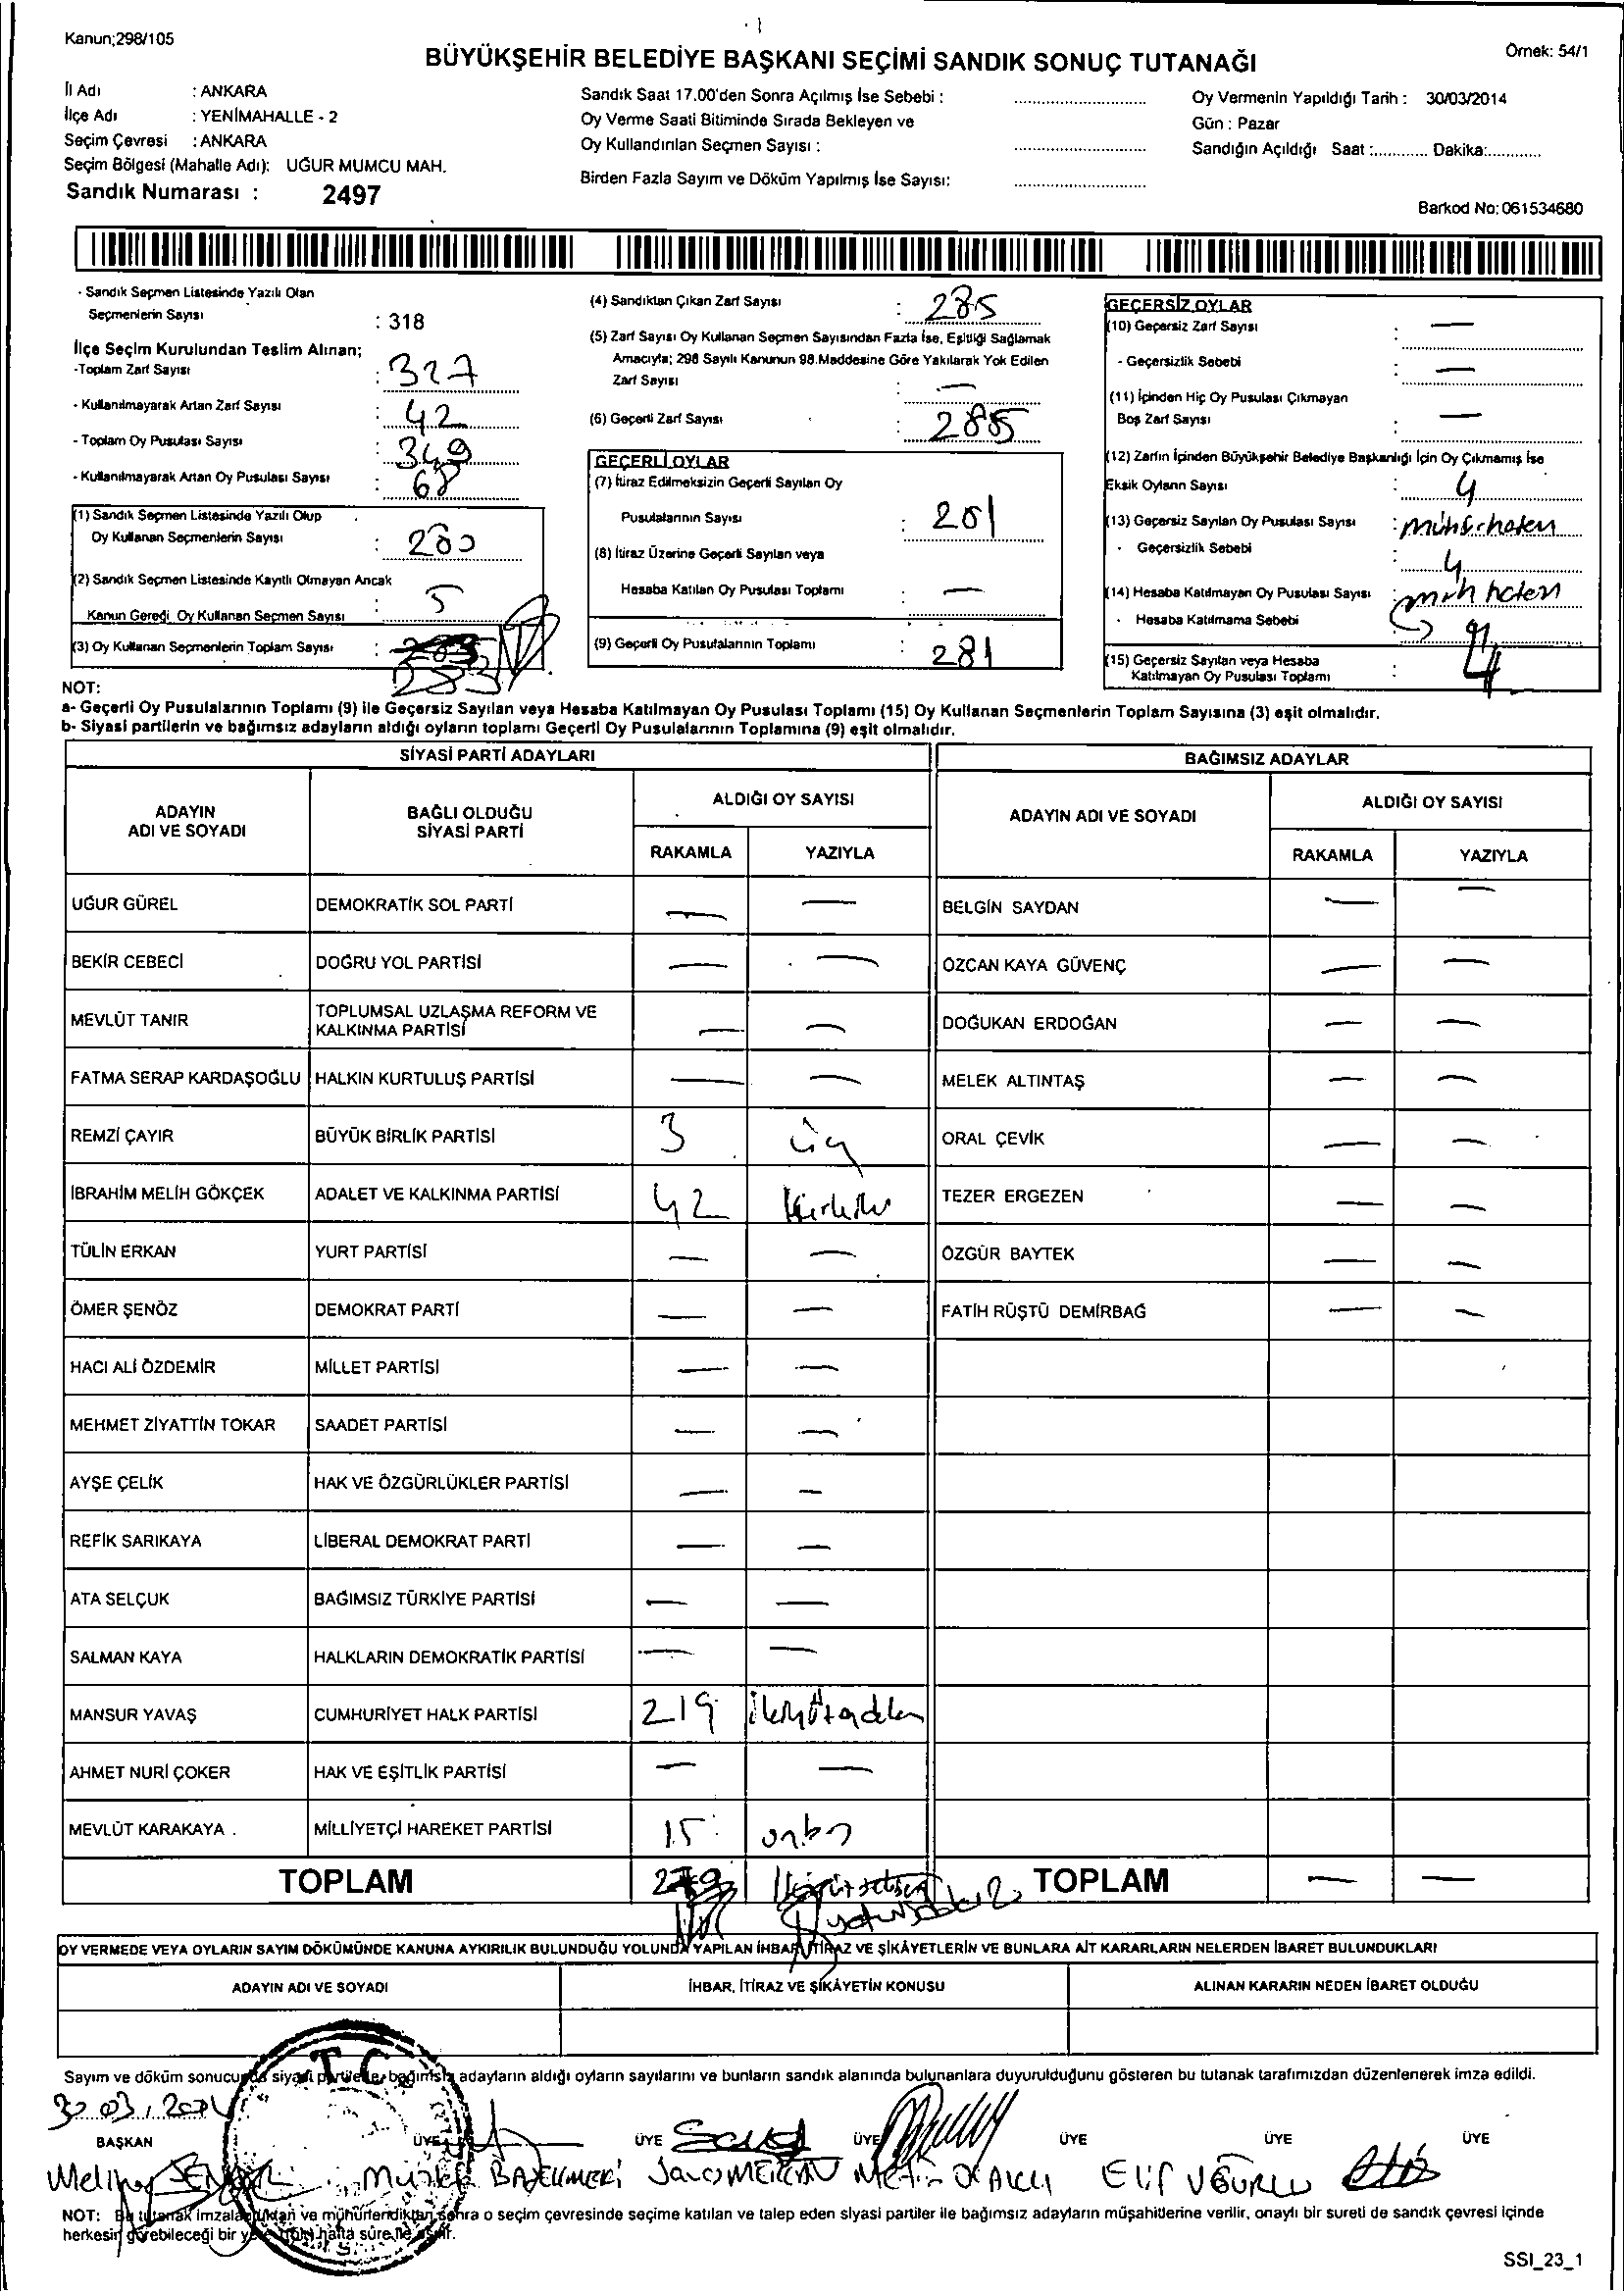 Kanun;298/105
BÜYÜKŞEHİR BELEDİYE BAŞKANI SEÇİMİ SANDIK SONUÇ TUTANAĞI
Örnek: 54/1
İl Adı : ANKARA
İlçe Adı : YENİMAHALLE - 2
Seçim Çevresi : ANKARA
Seçim Bölgesi (Mahalle Adı): UĞUR MUMCU MAH.
Sandık Numarası : 2497
Sandık Saat 17.00'den Sonra Açılmış İse Sebebi :
Oy Verme Saati Bitiminde Sırada Bekleyen ve
Oy Kullandırılan Seçmen Sayısı :
Birden Fazla Sayım ve Döküm Yapılmış İse Sayısı:
Oy Vermenin Yapıldığı Tarih : 30/03/2014
Gün : Pazar
Sandığın Açıldığı Saat :............ Dakika:............
Barkod No: 061534680
- Sandık Seçmen Listesinde Yazılı Olan
Seçmenlerin Sayısı : 318
İlçe Seçim Kurulundan Teslim Alınan;
-Toplam Zarf Sayısı : 327
- Kullanılmayarak Artan Zarf Sayısı : 42
- Toplam Oy Pusulası Sayısı : 349
- Kullanılmayarak Artan Oy Pusulası Sayısı : 68
(1) Sandık Seçmen Listesinde Yazılı Olup
Oy Kullanan Seçmenlerin Sayısı : 280
(2) Sandık Seçmen Listesinde Kayıtlı Olmayan Ancak
Kanun Gereği Oy Kullanan Seçmen Sayısı : 5
(3) Oy Kullanan Seçmenlerin Toplam Sayısı :
(4) Sandıktan Çıkan Zarf Sayısı : 285
(5) Zarf Sayısı Oy Kullanan Seçmen Sayısından Fazla İse, Eşitliği Sağlamak
Amacıyla; 298 Sayılı Kanunun 98.Maddesine Göre Yakılarak Yok Edilen
Zarf Sayısı : —
(6) Geçerli Zarf Sayısı : 285
GEÇERLİ OYLAR
(7) İtiraz Edilmeksizin Geçerli Sayılan Oy
Pusulalarının Sayısı : 281
(8) İtiraz Üzerine Geçerli Sayılan veya
Hesaba Katılan Oy Pusulası Toplamı : —
(9) Geçerli Oy Pusulalarının Toplamı : 281
GEÇERSİZ OYLAR
(10) Geçersiz Zarf Sayısı : —
- Geçersizlik Sebebi : —
(11) İçinden Hiç Oy Pusulası Çıkmayan
Boş Zarf Sayısı : —
(12) Zarfın İçinden Büyükşehir Belediye Başkanlığı İçin Oy Çıkmamış İse
Eksik Oyların Sayısı : 4
(13) Geçersiz Sayılan Oy Pusulası Sayısı :
- Geçersizlik Sebebi : 4
(14) Hesaba Katılmayan Oy Pusulası Sayısı :
- Hesaba Katılmama Sebebi
(15) Geçersiz Sayılan veya Hesaba
Katılmayan Oy Pusulası Toplamı : 4
NOT:
a- Geçerli Oy Pusulalarının Toplamı (9) ile Geçersiz Sayılan veya Hesaba Katılmayan Oy Pusulası Toplamı (15) Oy Kullanan Seçmenlerin Toplam Sayısına (3) eşit olmalıdır.
b- Siyasi partilerin ve bağımsız adayların aldığı oyların toplamı Geçerli Oy Pusulalarının Toplamına (9) eşit olmalıdır.
SİYASİ PARTİ ADAYLARI
BAĞIMSIZ ADAYLAR
ADAYIN ADI VE SOYADI
BAĞLI OLDUĞU SİYASİ PARTİ
ALDIĞI OY SAYISI
RAKAMLA YAZIYLA
ADAYIN ADI VE SOYADI
ALDIĞI OY SAYISI
RAKAMLA YAZIYLA
UĞUR GÜREL DEMOKRATİK SOL PARTİ — — BELGİN SAYDAN — —
BEKİR CEBECİ DOĞRU YOL PARTİSİ — — ÖZCAN KAYA GÜVENÇ — —
MEVLÜT TANIR TOPLUMSAL UZLAŞMA REFORM VE KALKINMA PARTİSİ — — DOĞUKAN ERDOĞAN — —
FATMA SERAP KARDAŞOĞLU HALKIN KURTULUŞ PARTİSİ — — MELEK ALTINTAŞ — —
REMZİ ÇAYIR BÜYÜK BİRLİK PARTİSİ 3 üç ORAL ÇEVİK — —
İBRAHİM MELİH GÖKÇEK ADALET VE KALKINMA PARTİSİ 42 kırkiki TEZER ERGEZEN — —
TÜLİN ERKAN YURT PARTİSİ — — ÖZGÜR BAYTEK — —
ÖMER ŞENÖZ DEMOKRAT PARTİ — — FATİH RÜŞTÜ DEMİRBAĞ — —
HACI ALİ ÖZDEMİR MİLLET PARTİSİ — —
MEHMET ZİYATTİN TOKAR SAADET PARTİSİ — —
AYŞE ÇELİK HAK VE ÖZGÜRLÜKLER PARTİSİ — —
REFİK SARIKAYA LİBERAL DEMOKRAT PARTİ — —
ATA SELÇUK BAĞIMSIZ TÜRKİYE PARTİSİ — —
SALMAN KAYA HALKLARIN DEMOKRATİK PARTİSİ — —
MANSUR YAVAŞ CUMHURİYET HALK PARTİSİ 219
AHMET NURİ ÇOKER HAK VE EŞİTLİK PARTİSİ — —
MEVLÜT KARAKAYA . MİLLİYETÇİ HAREKET PARTİSİ 15 onbeş
TOPLAM 279 TOPLAM — —
OY VERMEDE VEYA OYLARIN SAYIM DÖKÜMÜNDE KANUNA AYKIRILIK BULUNDUĞU YOLUNDA YAPILAN İHBAR, İTİRAZ VE ŞİKÂYETLERİN VE BUNLARA AİT KARARLARIN NELERDEN İBARET BULUNDUKLARI
ADAYIN ADI VE SOYADI İHBAR, İTİRAZ VE ŞİKÂYETİN KONUSU ALINAN KARARIN NEDEN İBARET OLDUĞU
Sayım ve döküm sonucunda siyasi partiler bağımsız adayların aldığı oyların sayılarını ve bunların sandık alanında bulunanlara duyurulduğunu gösteren bu tutanak tarafımızdan düzenlenerek imza edildi.
30.03.2014
T.C.
BAŞKAN ÜYE ÜYE ÜYE ÜYE ÜYE ÜYE
ELİF UĞURLU
NOT: Bu tutanak imzalandıktan ve mühürlendikten sonra o seçim çevresinde seçime katılan ve talep eden siyasi partiler ile bağımsız adayların müşahitlerine verilir, onaylı bir sureti de sandık çevresi içinde
herkesin görebileceği bir yere bir hafta süre ile asılır.
SSI_23_1